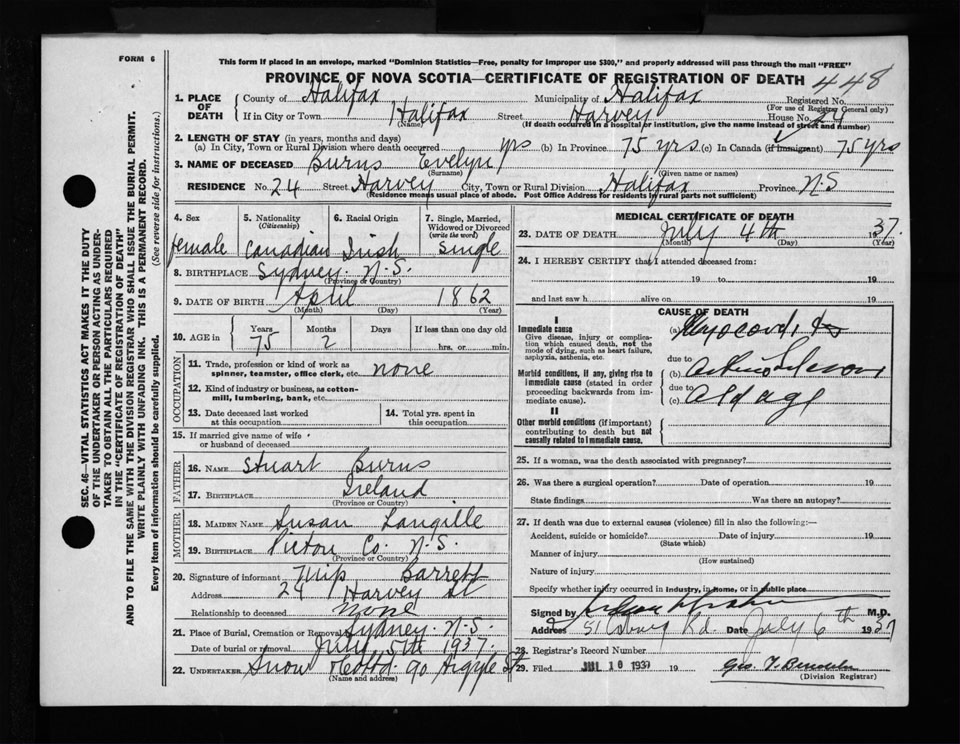 FORM 6
This form if placed in an envelope, marked "Dominion Statistics—Free, penalty for improper use $300," and properly addressed will pass through the mail "FREE"
PROVINCE OF NOVA SCOTIA—CERTIFICATE OF REGISTRATION OF DEATH 448
1. PLACE OF DEATH County of Halifax Municipality of Halifax Registered No. (For use of Registrar General only)
If in City or Town Halifax (Name) Street Harvey House No. 24
(If death occurred in a hospital or institution, give the name instead of street and number)
2. LENGTH OF STAY (in years, months and days)
(a) In City, Town or Rural Division where death occurred yrs (b) In Province 75 yrs (c) In Canada (if immigrant) 75 yrs
3. NAME OF DECEASED Burns Evelyn
(Surname) (Given name or names)
RESIDENCE No. 24 Street Harvey City, Town or Rural Division Halifax Province N.S
(Residence means usual place of abode. Post Office Address for residents in rural parts not sufficient)
4. Sex female
5. Nationality (Citizenship) Canadian
6. Racial Origin Irish
7. Single, Married, Widowed or Divorced (write the word) Single
8. BIRTHPLACE Sydney N.S.
(Province or Country)
9. DATE OF BIRTH April 1862
(Month) (Day) (Year)
10. AGE in Years 75 Months 2 Days If less than one day old hrs. or min.
OCCUPATION
11. Trade, profession or kind of work as spinner, teamster, office clerk, etc. none
12. Kind of industry or business, as cotton-mill, lumbering, bank, etc.
13. Date deceased last worked at this occupation
14. Total yrs. spent in this occupation
15. If married give name of wife or husband of deceased
FATHER
16. NAME Stuart Burns
17. BIRTHPLACE Ireland
(Province or Country)
MOTHER
18. MAIDEN NAME Susan Langille
19. BIRTHPLACE Pictou Co. N.S.
(Province or Country)
20. Signature of informant Barrett
Address 24 Harvey St
Relationship to deceased none
21. Place of Burial, Cremation or Removal Sydney N.S.
Date of burial or removal July 5th 1937
22. UNDERTAKER Snow 90 Argyle St
(Name and address)
MEDICAL CERTIFICATE OF DEATH
23. DATE OF DEATH July 4th 1937.
(Month) (Day) (Year)
24. I HEREBY CERTIFY that I attended deceased from:
19 to 19
and last saw h alive on 19
CAUSE OF DEATH
I
Immediate cause
Give disease, injury or complication which caused death, not the mode of dying, such as heart failure, asphyxia, asthenia, etc.
(a) Myocarditis
due to
Morbid conditions, if any, giving rise to immediate cause (stated in order proceeding backwards from immediate cause).
(b)
due to
(c) Old age
II
Other morbid conditions (if important) contributing to death but not causally related to immediate cause.
25. If a woman, was the death associated with pregnancy?
26. Was there a surgical operation? Date of operation 19
State findings Was there an autopsy?
27. If death was due to external causes (violence) fill in also the following:—
Accident, suicide or homicide? Date of injury 19
(State which)
Manner of injury
(How sustained)
Nature of injury
Specify whether injury occurred in Industry, in Home, or in public place
Signed by M.D.
Address 51 Rd. Date July 6th 1937
28. Registrar's Record Number
29. Filed JUL 10 1937 19
(Division Registrar)
SEC. 46—VITAL STATISTICS ACT MAKES IT THE DUTY
OF THE UNDERTAKER OR PERSON ACTING AS UNDER-
TAKER TO OBTAIN ALL THE PARTICULARS REQUIRED
IN THE "CERTIFICATE OF REGISTRATION OF DEATH"
AND TO FILE THE SAME WITH THE DIVISION REGISTRAR WHO SHALL ISSUE THE BURIAL PERMIT.
WRITE PLAINLY WITH UNFADING INK. THIS IS A PERMANENT RECORD.
Every item of information should be carefully supplied. (See reverse side for instructions.)